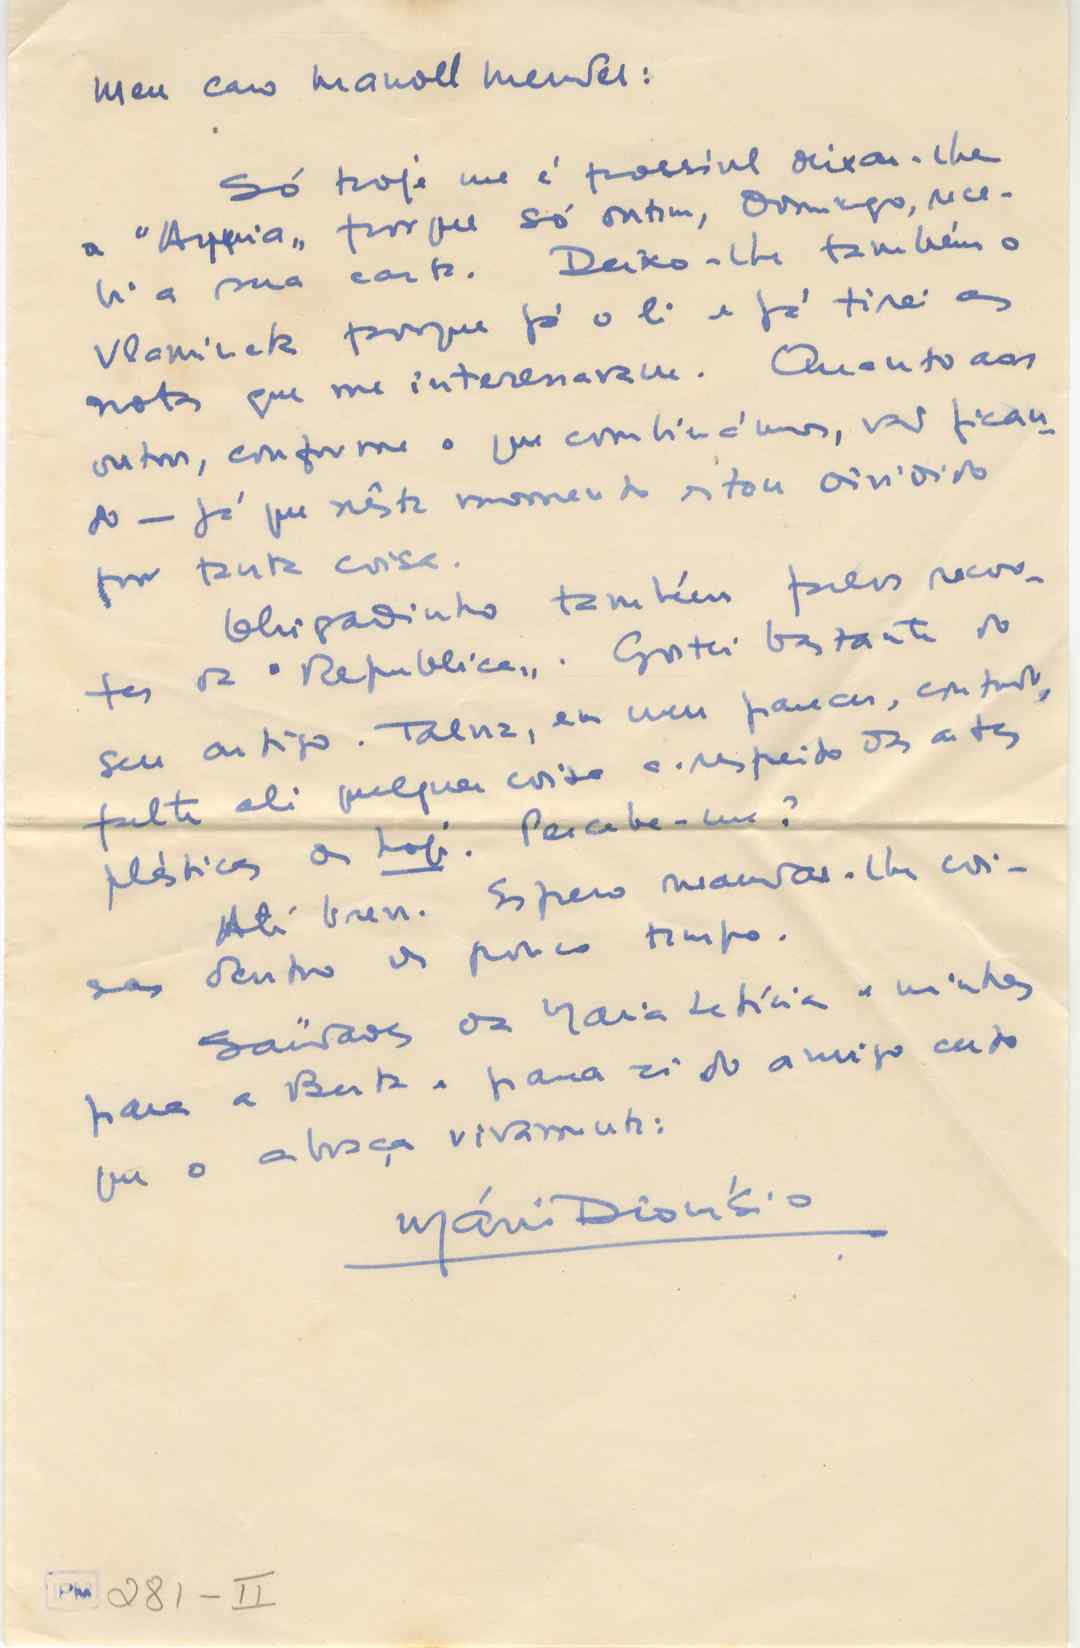 Meu caro Manoel Mendes:
Só hoje me é possivel deixar-lhe
a "Hygeia„ porque só ontem, Domingo, rece-
bi a sua carta. Deixo-lhe também o
Vlaminck porque já o li e já tirei as
notas que me interessavam. Quanto aos
outros, conforme o que combinámos, vão fican-
do — já que nêste momento estou dividido
por tanta coisa.
Obrigadinho também pelos recor-
tes da "Republica„. Gostei bastante do
seu artigo. Talvez, em meu parecer, contudo,
falte ali qualquer coisa a respeito das artes
plásticas de hoje. Percebe-me?
Até breve. Espero mandar-lhe coi-
sas dentro de pouco tempo.
Saüdades da Maria Letícia e minhas
para a Berta e para si do amigo certo
que o abraça vivamente:
Mário Dionísio
PM 281-II